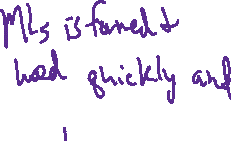 MLs is formed &
used quickly and